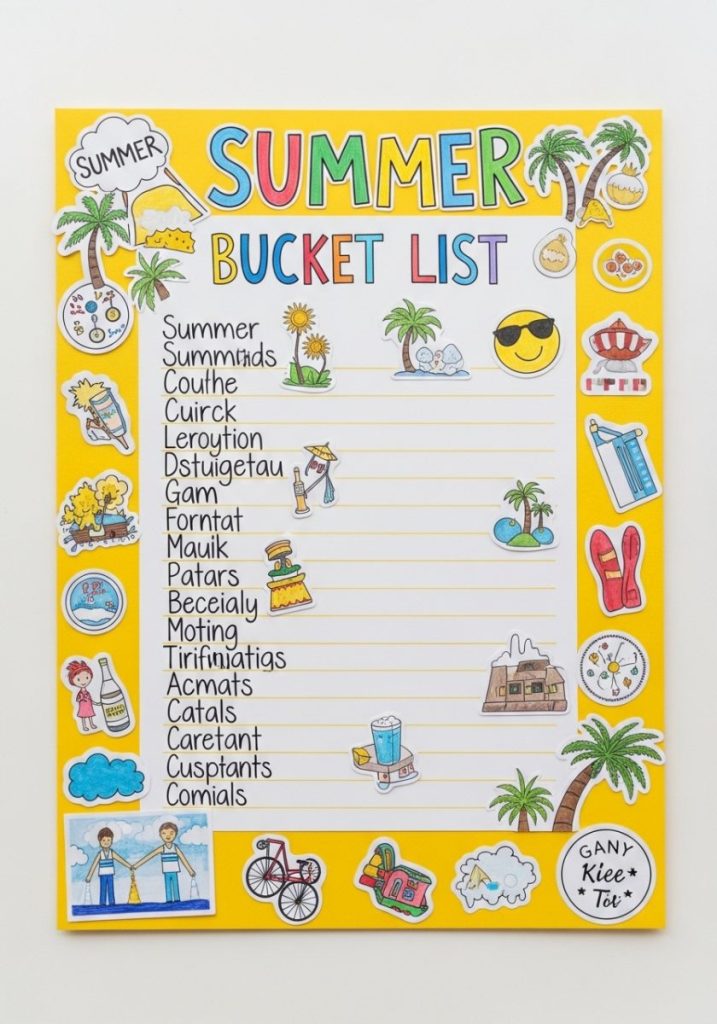 SUMMER
SUMMER
BUCKET LIST
Summer
Couthe
Cuirck
Leroytion
Dstuigetau
Gam
Forntat
Mauik
Patars
Beceialy
Moting
Acmats
Catals
Caretant
Cusptants
Comials
GANY
Kiee
Tot